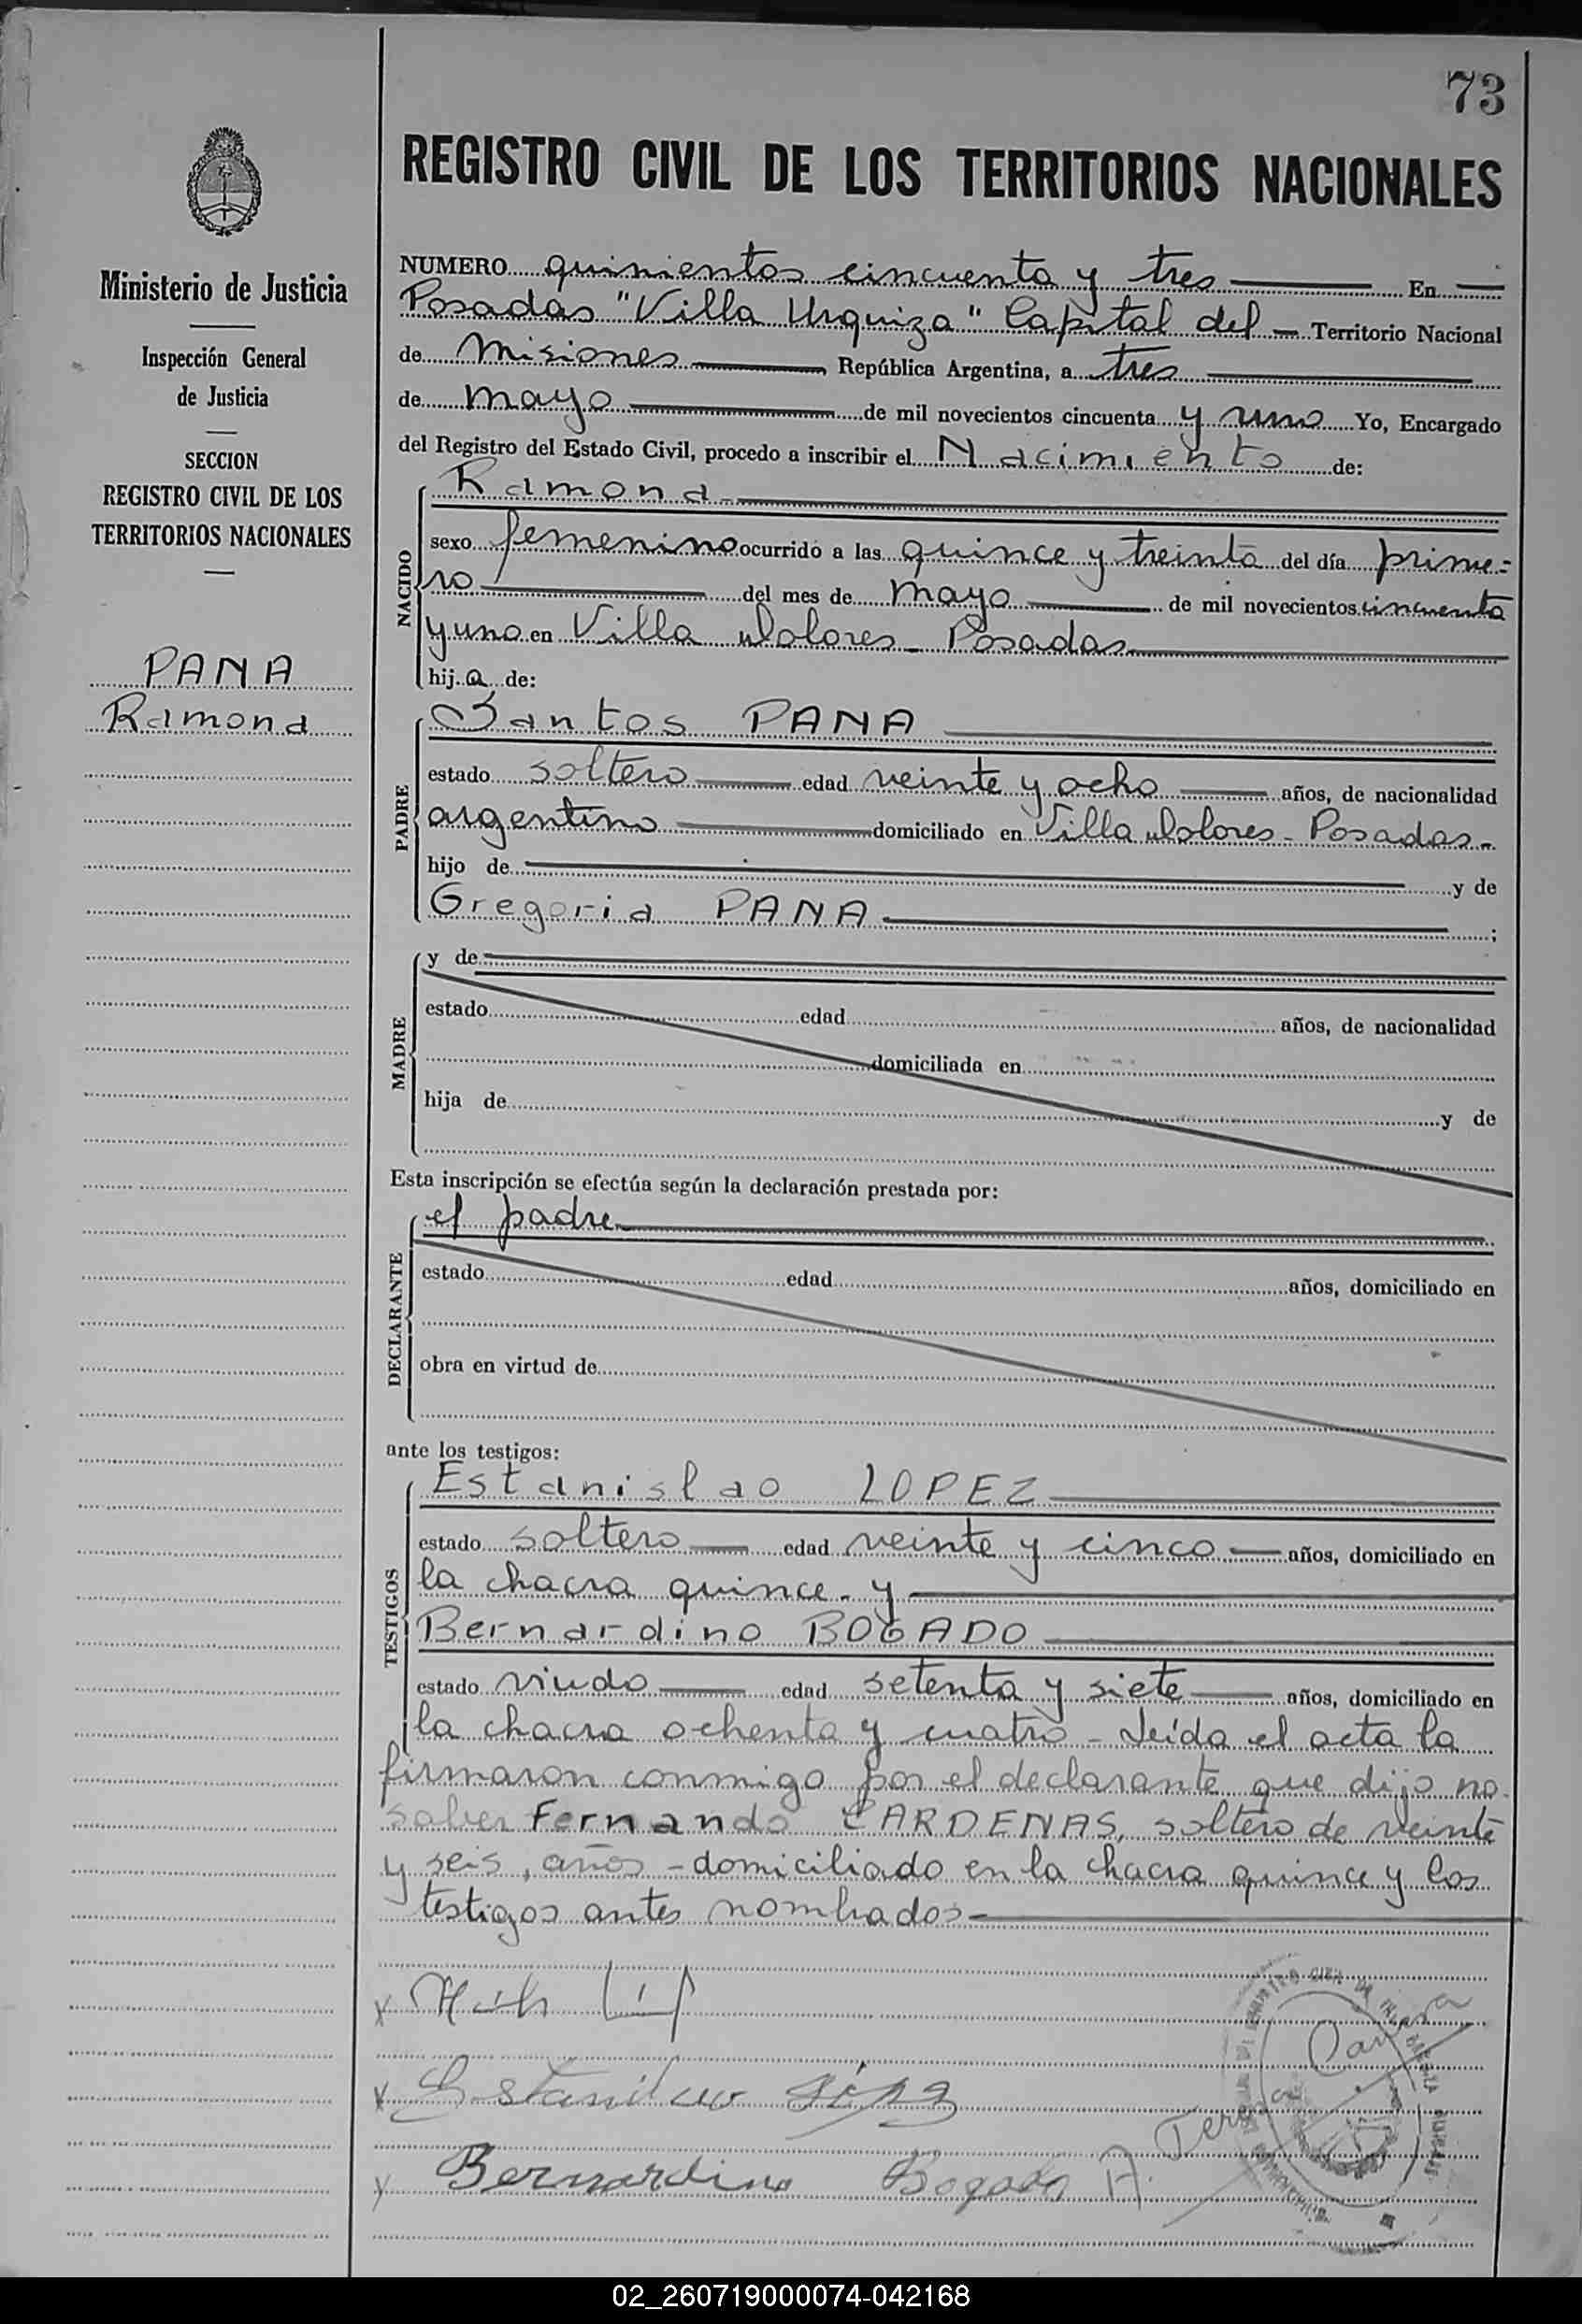 73
REGISTRO CIVIL DE LOS TERRITORIOS NACIONALES
Ministerio de Justicia
Inspección General
de Justicia
SECCION
REGISTRO CIVIL DE LOS
TERRITORIOS NACIONALES
PANA
Ramona
NUMERO quinientos cincuenta y tres En
Posadas "Villa Urquiza" Capital del Territorio Nacional
de Misiones, República Argentina, a tres
de mayo de mil novecientos cincuenta y uno Yo, Encargado
del Registro del Estado Civil, procedo a inscribir el Nacimiento de:
Ramona
NACIDO
sexo femenino ocurrido a las quince y treinta del día prime=
ro del mes de mayo de mil novecientos cincuenta
y uno en Villa Dolores - Posadas
hij a de:
PADRE
Santos PANA
estado soltero edad veinte y ocho años, de nacionalidad
argentino domiciliado en Villa Dolores - Posadas -
hijo de y de
Gregoria PANA ;
MADRE
y de
estado edad años, de nacionalidad
domiciliada en
hija de y de
Esta inscripción se efectúa según la declaración prestada por:
el padre
DECLARANTE
estado edad años, domiciliado en
obra en virtud de
ante los testigos:
TESTIGOS
Estanislao LOPEZ
estado soltero edad veinte y cinco años, domiciliado en
la chacra quince - y
Bernardino BOGADO
estado viudo edad setenta y siete años, domiciliado en
la chacra ochenta y cuatro - Leída el acta la
firmaron conmigo por el declarante que dijo no
saber Fernando CARDENAS, soltero de veinte
y seis, años - domiciliado en la chacra quince y los
testigos antes nombrados -
Estanislao López
Bernardino Bogado A. Teresa
02_260719000074-042168